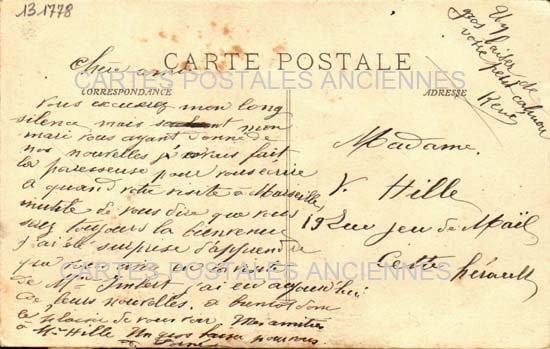 13.1778
Un
gros baiser de
votre petit
René
CARTE POSTALE
Chère amie
CARTES POSTALES ANCIENNES
CORRESPONDANCE
ADRESSE
Vous excuserez mon long
silence mais mon
mari vous ayant donné de
nos nouvelles j'avais fait
la paresseuse pour vous écrire
à quand votre visite à Marseille
inutile de vous dire que vous
serez toujours la bienvenue
j'ai été surprise d'apprendre
CARTES POSTALES ANCIENNES
de Mme Imbert j'ai eu aujourd'hui
de leurs nouvelles, à bientôt donc
le plaisir de vous voir. Mes amitiés
à Mr Hille Un gros baiser pour vous
Madame
V. Hille
19 Rue jeu de Mail
Cette
hérault